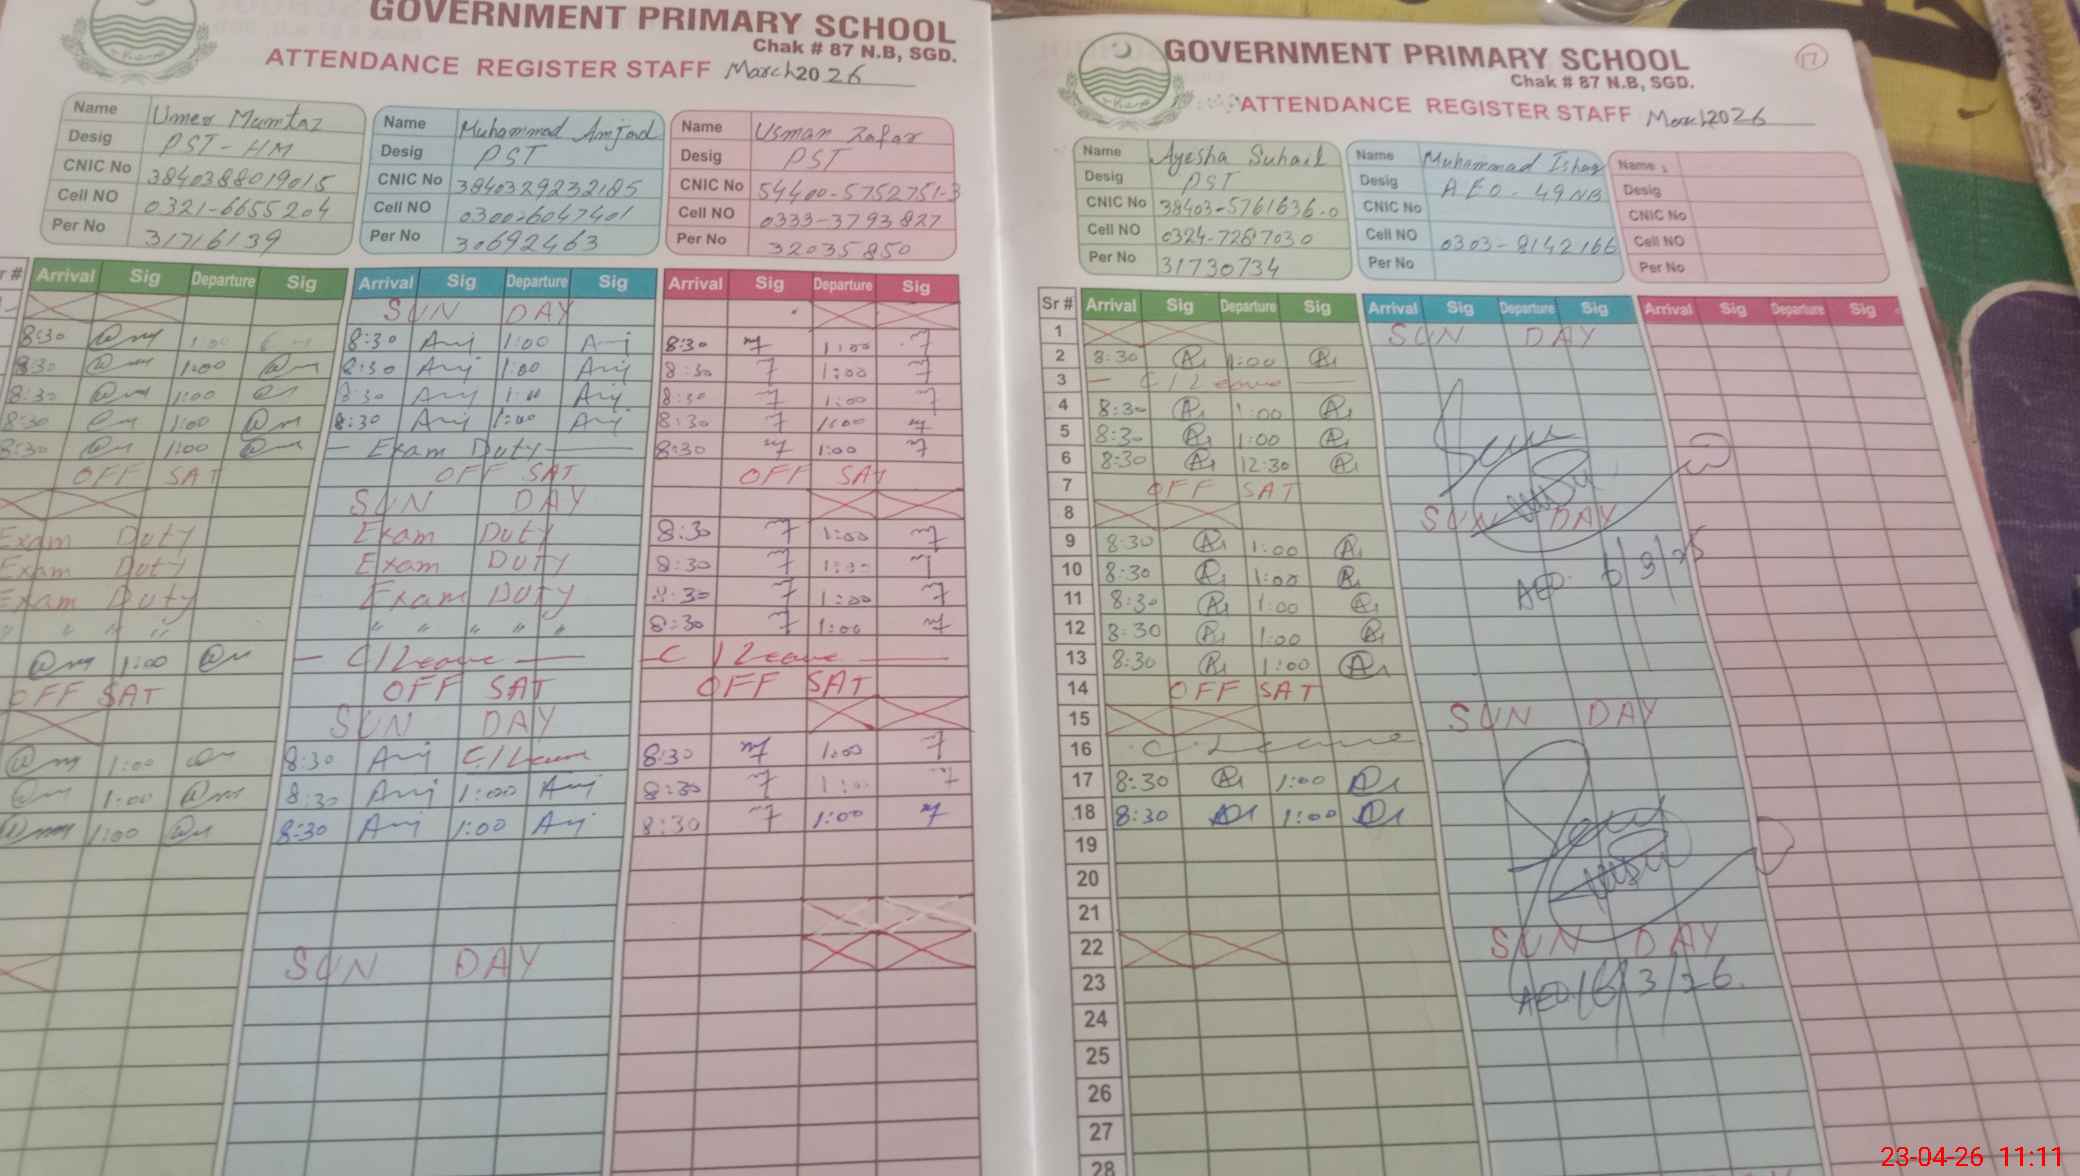 GOVERNMENT PRIMARY SCHOOL
Chak # 87 N.B, SGD.
ATTENDANCE REGISTER STAFF March 2026
Name Umer Mumtaz
Desig PST-HM
CNIC No 3840388019015
Cell NO 0321-6655204
Per No 31716139
Name Muhammad Amjad
Desig PST
CNIC No 3840329232185
Cell NO 030026047401
Per No 30692463
Name Usman Zafar
Desig PST
CNIC No 54400-5752751-3
Cell NO 0333-3793827
Per No 32035850
Arrival Sig Departure Sig Arrival Sig Departure Sig Arrival Sig Departure Sig
SUN DAY
8:30 1:00 8:30 Amj 1:00 Amj 8:30 1:00
8:30 1:00 8:30 Amj 1:00 Amj 8:30 1:00
8:30 1:00 8:30 Amj 1:00 Amj 8:30 1:00
8:30 1:00 8:30 Amj 1:00 Amj 8:30 1:00
8:30 1:00 — Exam Duty — 8:30 1:00
OFF SAT OFF SAT OFF SAT
SUN DAY
Exam Duty Exam Duty 8:30 1:00
Exam Duty Exam Duty 8:30 1:00
Exam Duty Exam Duty 8:30 1:00
" " " " " " " " " 8:30 1:00
1:00 — C/Leave — — C/Leave —
OFF SAT OFF SAT OFF SAT
SUN DAY
1:00 8:30 Amj C/Leave 8:30 1:00
1:00 8:30 Amj 1:00 Amj 8:30 1:00
1:00 8:30 Amj 1:00 Amj 8:30 1:00
SUN DAY
17
GOVERNMENT PRIMARY SCHOOL
Chak # 87 N.B, SGD.
ATTENDANCE REGISTER STAFF March 2026
Name Ayesha Suhail
Desig PST
CNIC No 38403-5761636-0
Cell NO 0324-7287030
Per No 31730734
Name Muhammad Ishaq
Desig AEO-49NB
CNIC No
Cell NO 0303-8142166
Per No
Name :
Desig
CNIC No
Cell NO
Per No
Sr # Arrival Sig Departure Sig Arrival Sig Departure Sig Arrival Sig Departure Sig
1 SUN DAY
2 8:30 1:00
3 — C/Leave —
4 8:30 1:00
5 8:30 1:00
6 8:30 12:30
7 OFF SAT
8 SUN DAY
9 8:30 1:00
10 8:30 1:00
11 8:30 1:00
AEO
12 8:30 1:00
13 8:30 1:00
14 OFF SAT
15 SUN DAY
16 C/Leave
17 8:30 1:00
18 8:30 1:00
19
20
21
22 SUN DAY
23 AEO 16/3/26
24
25
26
27
28
23-04-26 11:11